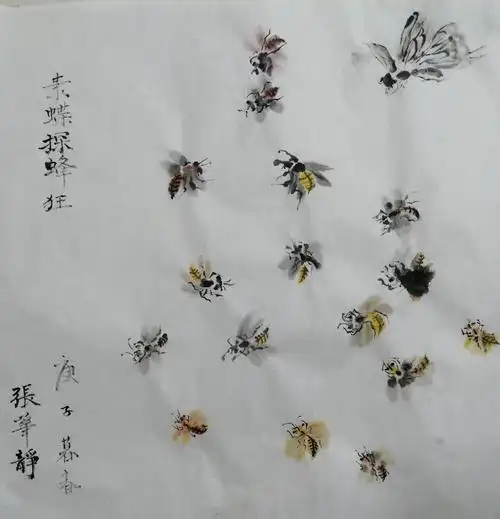 素蝶探蜂狂
庚子暮春
張華靜